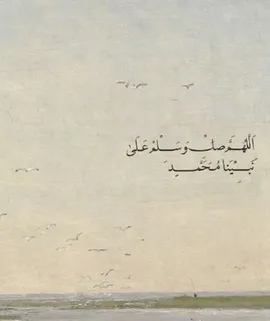 اَللّٰهُمَّ صَلِّ وَسَلِّمْ عَلَىٰ
نَبِيِّنَا مُحَمَّدٍ